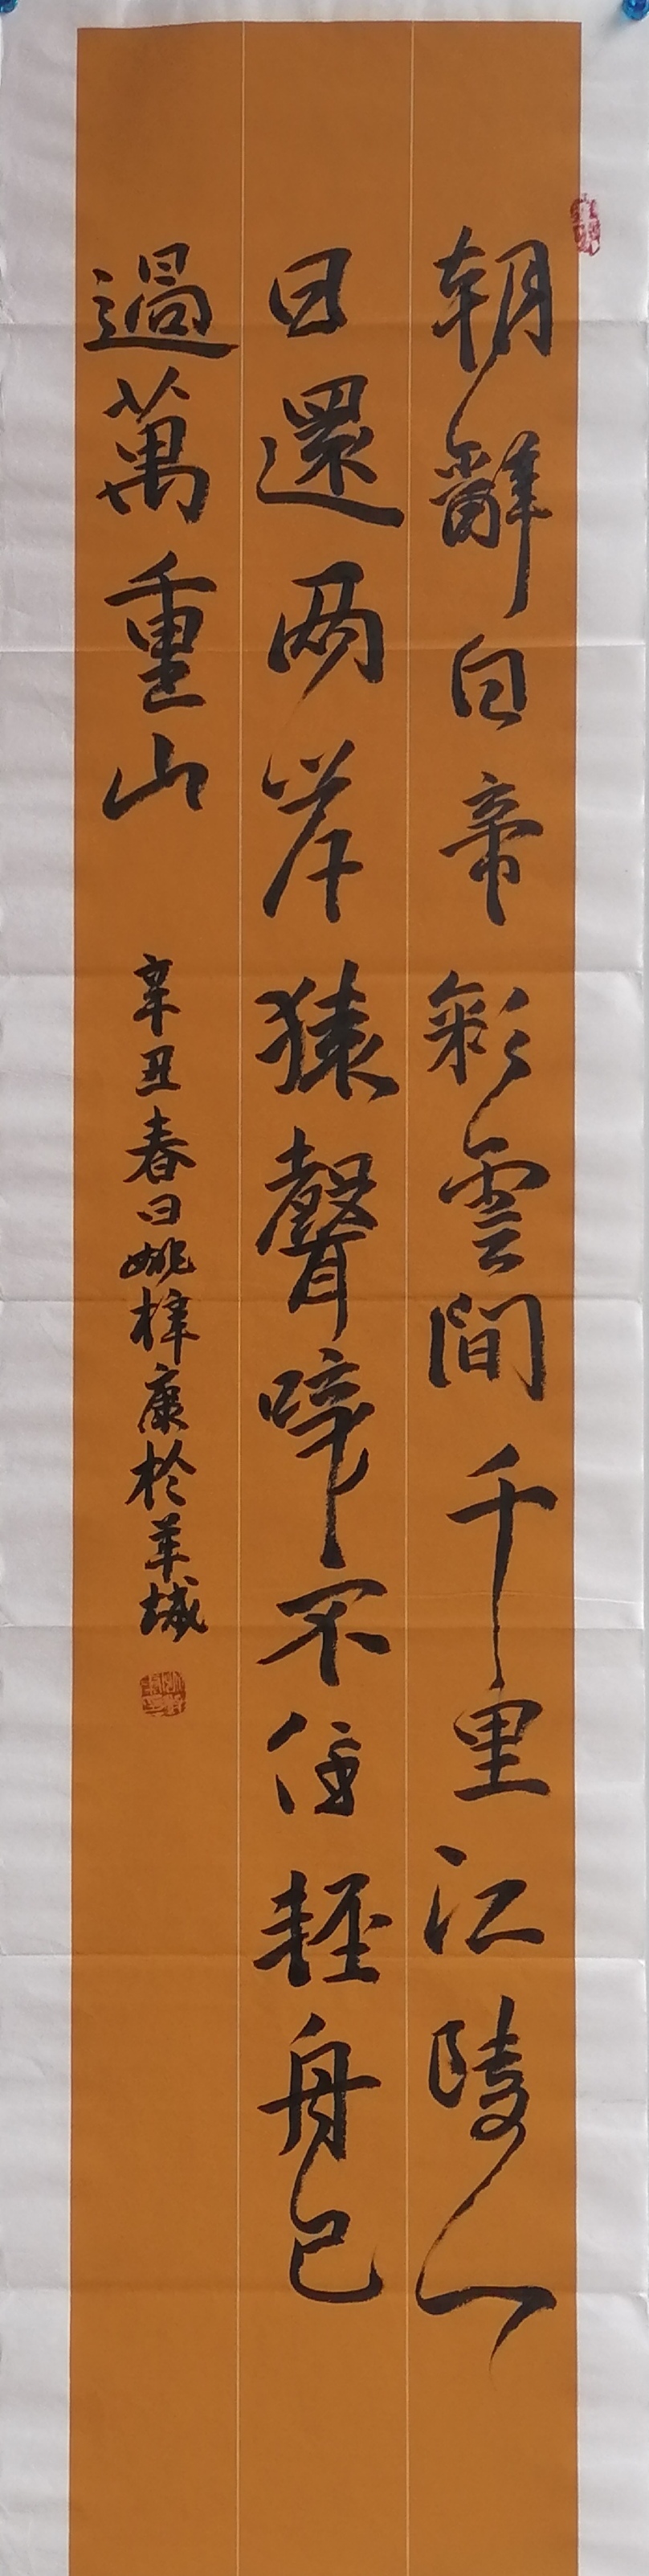 朝辭白帝彩雲間千里江陵一
日還两岸猿聲啼不住輕舟已
過萬重山
辛丑春日姚梓康於羊城